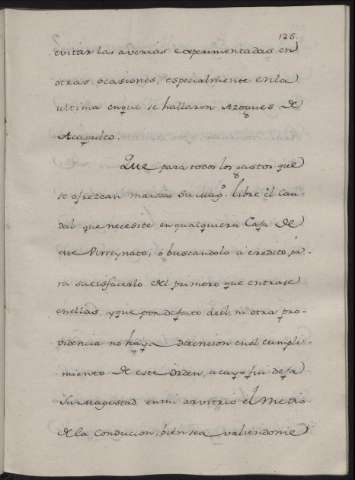 126.
evitar las averias experimentadas en
otras ocasiones, especialmente en la
ultima en que se hallaron Azogues de
Acapulco.
Que para todos los gastos que
se ofrezcan manda Su Mag.^d libre el cau-
dal que necesite en qualquiera Caja de
ese Virreynato, ó buscandolo á credito pa-
ra satisfacerlo del primero que entrase
en ellas, y que por defecto de el, ni otra pro-
videncia no haya detencion en el cumpli-
miento de este orden, á cuyo fin deja
Su Magestad en mi arvitrio el medio
de la conducion, bien sea valiendome